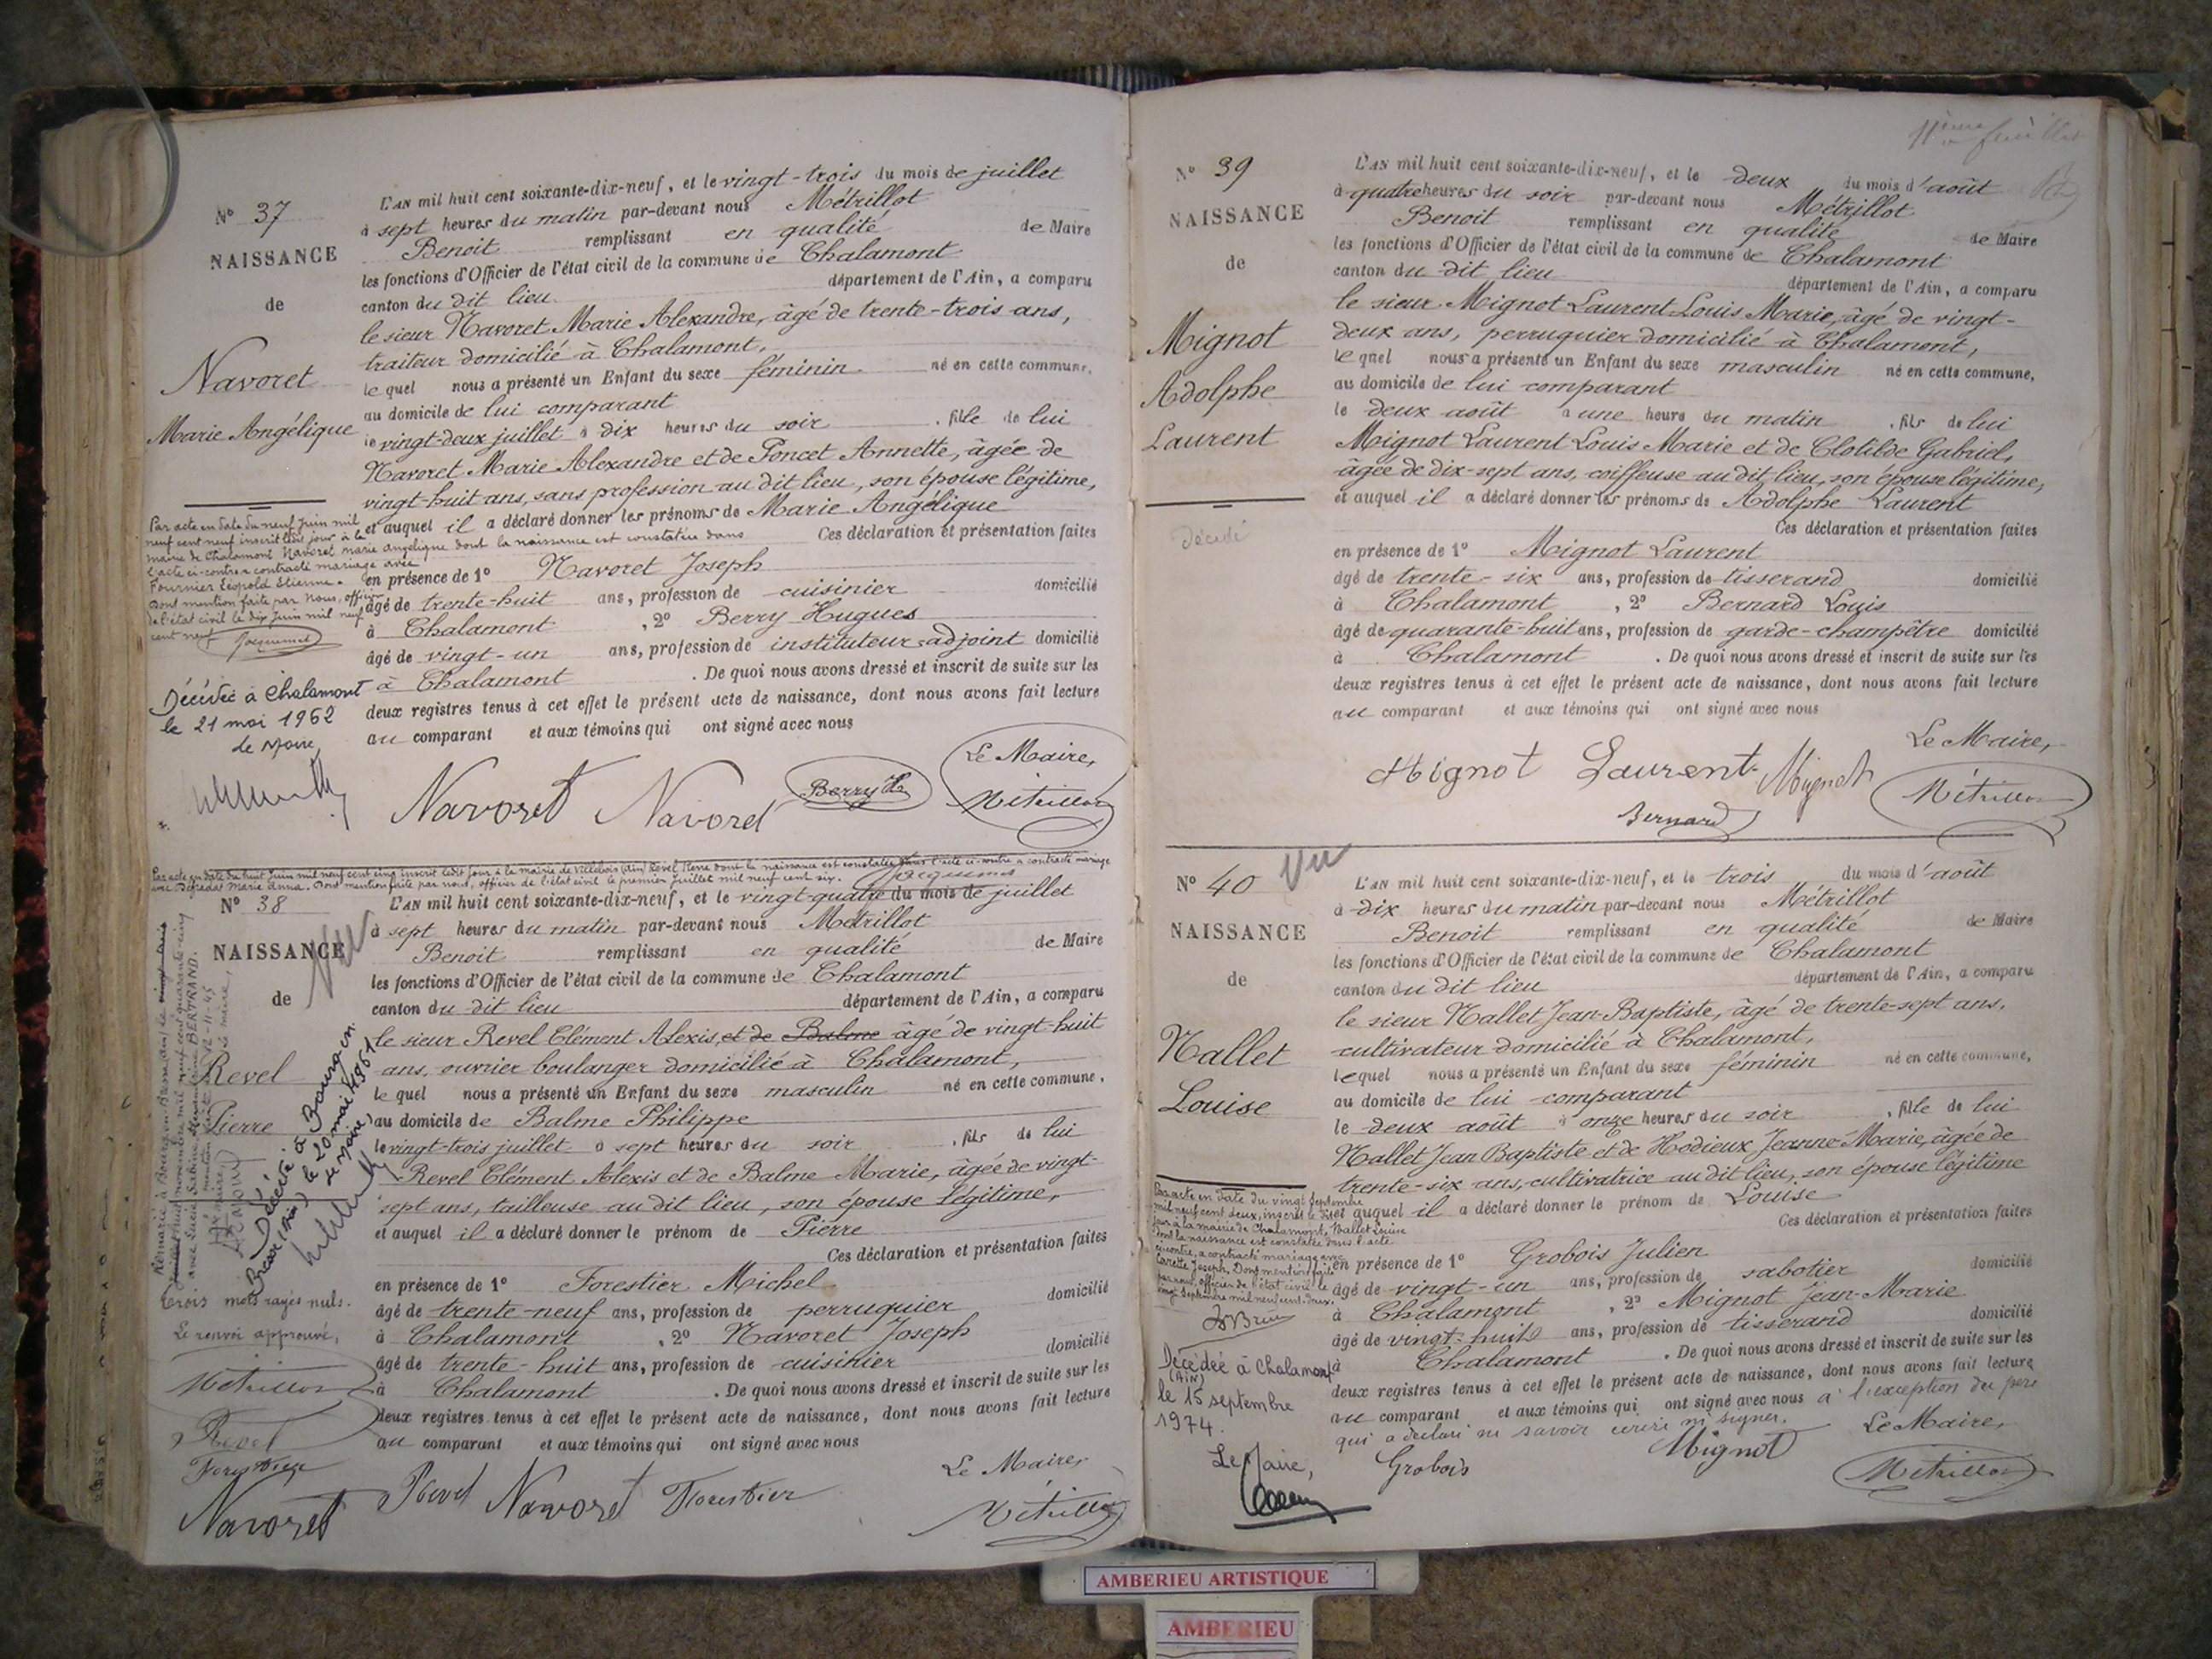 N° 37
NAISSANCE
de
Navoret
Marie Angélique
L'AN mil huit cent soixante-dix-neuf, et le vingt-trois du mois de juillet
à sept heures du matin par-devant nous Métrillot
Benoit remplissant en qualité de Maire
les fonctions d'Officier de l'état civil de la commune de Chalamont
canton du dit lieu département de l'Ain, a comparu
le sieur Navoret Marie Alexandre, âgé de trente-trois ans,
traiteur domicilié à Chalamont,
le quel nous a présenté un Enfant du sexe féminin né en cette commune,
au domicile de lui comparant
le vingt-deux juillet à dix heures du soir, fille de lui
Navoret Marie Alexandre et de Poncet Annette, âgée de
vingt-huit ans, sans profession au dit lieu, son épouse légitime,
et auquel il a déclaré donner les prénoms de Marie Angélique
Ces déclaration et présentation faites
en présence de 1° Navoret Joseph
âgé de trente-huit ans, profession de cuisinier domicilié
à Chalamont, 2° Berry Hugues
âgé de vingt-un ans, profession de instituteur-adjoint domicilié
à Chalamont. De quoi nous avons dressé et inscrit de suite sur les
deux registres tenus à cet effet le présent acte de naissance, dont nous avons fait lecture
au comparant et aux témoins qui ont signé avec nous
Le Maire,
Navoret Navoret Berry H Métrillot
Par acte en date du neuf Juin mil
neuf cent neuf inscrit ledit jour à la
mairie de Chalamont Navoret marie angelique dont la naissance est constatée dans
l'acte ci-contre a contracté mariage avec
Fournier Léopold Etienne.
Dont mention faite par Nous, officier
de l'état civil le dix Juin mil neuf
cent neuf
Jacquemet
Décédée à Chalamont
le 21 mai 1962
Le Maire,
Par acte en date du huit Juin mil neuf cent cinq inscrit ledit jour à la mairie de Villebois (Ain) Revel Pierre dont la naissance est constatée dans l'acte ci-contre a contracté mariage
avec Marie Anna. Dont mention faite par nous, officier de l'état civil le premier Juillet mil neuf cent six.
N° 38
Vu
NAISSANCE
de
Revel
Pierre
L'AN mil huit cent soixante-dix-neuf, et le vingt-quatre du mois de juillet
à sept heures du matin par-devant nous Métrillot
Benoit remplissant en qualité de Maire
les fonctions d'Officier de l'état civil de la commune de Chalamont
canton du dit lieu département de l'Ain, a comparu
le sieur Revel Clément Alexis, et de Balme âgé de vingt-huit
ans, ouvrier boulanger domicilié à Chalamont,
le quel nous a présenté un Enfant du sexe masculin né en cette commune,
au domicile de Balme Philippe
le vingt-trois juillet à sept heures du soir, fils de lui
Revel Clément Alexis et de Balme Marie, âgée de vingt-
sept ans, tailleuse au dit lieu, son épouse légitime,
et auquel il a déclaré donner le prénom de Pierre
Ces déclaration et présentation faites
en présence de 1° Forestier Michel
âgé de trente-neuf ans, profession de perruquier domicilié
à Chalamont, 2° Navoret Joseph
âgé de trente-huit ans, profession de cuisinier domicilié
à Chalamont. De quoi nous avons dressé et inscrit de suite sur les
deux registres tenus à cet effet le présent acte de naissance, dont nous avons fait lecture
au comparant et aux témoins qui ont signé avec nous
Le Maire,
Revel Navoret Forestier Métrillot
Décédé à Bourg en
Bresse (Ain) le 20 mai 1961
Le Maire,
trois mots rayés nuls.
Le renvoi approuvé,
Métrillot
Revel
Forestier
Navoret
11ème feuillet
N° 39
NAISSANCE
de
Mignot
Adolphe
Laurent
Décédé
L'AN mil huit cent soixante-dix-neuf, et le deux du mois d'août
à quatre heures du soir par-devant nous Métrillot
Benoit remplissant en qualité de Maire
les fonctions d'Officier de l'état civil de la commune de Chalamont
canton du dit lieu département de l'Ain, a comparu
le sieur Mignot Laurent Louis Marie, âgé de vingt-
deux ans, perruquier domicilié à Chalamont,
le quel nous a présenté un Enfant du sexe masculin né en cette commune,
au domicile de lui comparant
le deux août à une heure du matin, fils de lui
Mignot Laurent Louis Marie et de Clotilde Gabriel,
âgée de dix-sept ans, coiffeuse au dit lieu, son épouse légitime,
et auquel il a déclaré donner les prénoms de Adolphe Laurent
Ces déclaration et présentation faites
en présence de 1° Mignot Laurent
âgé de trente-six ans, profession de tisserand domicilié
à Chalamont, 2° Bernard Louis
âgé de quarante-huit ans, profession de garde-champêtre domicilié
à Chalamont. De quoi nous avons dressé et inscrit de suite sur les
deux registres tenus à cet effet le présent acte de naissance, dont nous avons fait lecture
au comparant et aux témoins qui ont signé avec nous
Le Maire,
Mignot Laurent Mignot Métrillot
Bernard
N° 40
Vu
NAISSANCE
de
Nallet
Louise
L'AN mil huit cent soixante-dix-neuf, et le trois du mois d'août
à dix heures du matin par-devant nous Métrillot
Benoit remplissant en qualité de Maire
les fonctions d'Officier de l'état civil de la commune de Chalamont
canton du dit lieu département de l'Ain, a comparu
le sieur Nallet Jean-Baptiste, âgé de trente-sept ans,
cultivateur domicilié à Chalamont,
lequel nous a présenté un Enfant du sexe féminin né en cette commune,
au domicile de lui comparant
le deux août à onze heures du soir, fille de lui
Nallet Jean Baptiste et de Hodieux Jeanne-Marie, âgée de
trente-six ans, cultivatrice au dit lieu, son épouse légitime
et auquel il a déclaré donner le prénom de Louise
Ces déclaration et présentation faites
en présence de 1° Grobois Julien
âgé de vingt-un ans, profession de sabotier domicilié
à Chalamont, 2° Mignot Jean-Marie
âgé de vingt-huit ans, profession de tisserand domicilié
à Chalamont. De quoi nous avons dressé et inscrit de suite sur les
deux registres tenus à cet effet le présent acte de naissance, dont nous avons fait lecture
au comparant et aux témoins qui ont signé avec nous a l'exception du père
qui a déclaré ne savoir écrire ni signer.
Le Maire,
Grobois Mignot Métrillot
Par acte en date du vingt Septembre
mil neuf cent deux, inscrit le dit
jour à la mairie de Chalamont, Nallet Louise
dont la naissance est constatée dans l'acte
ci-contre, a contracté mariage avec
Joseph. Dont mention faite
par nous, officier de l'état civil le
vingt Septembre mil neuf cent deux.
Décédée à Chalamont
(Ain)
le 15 septembre
1974.
Le Maire,
AMBERIEU ARTISTIQUE
AMBERIEU